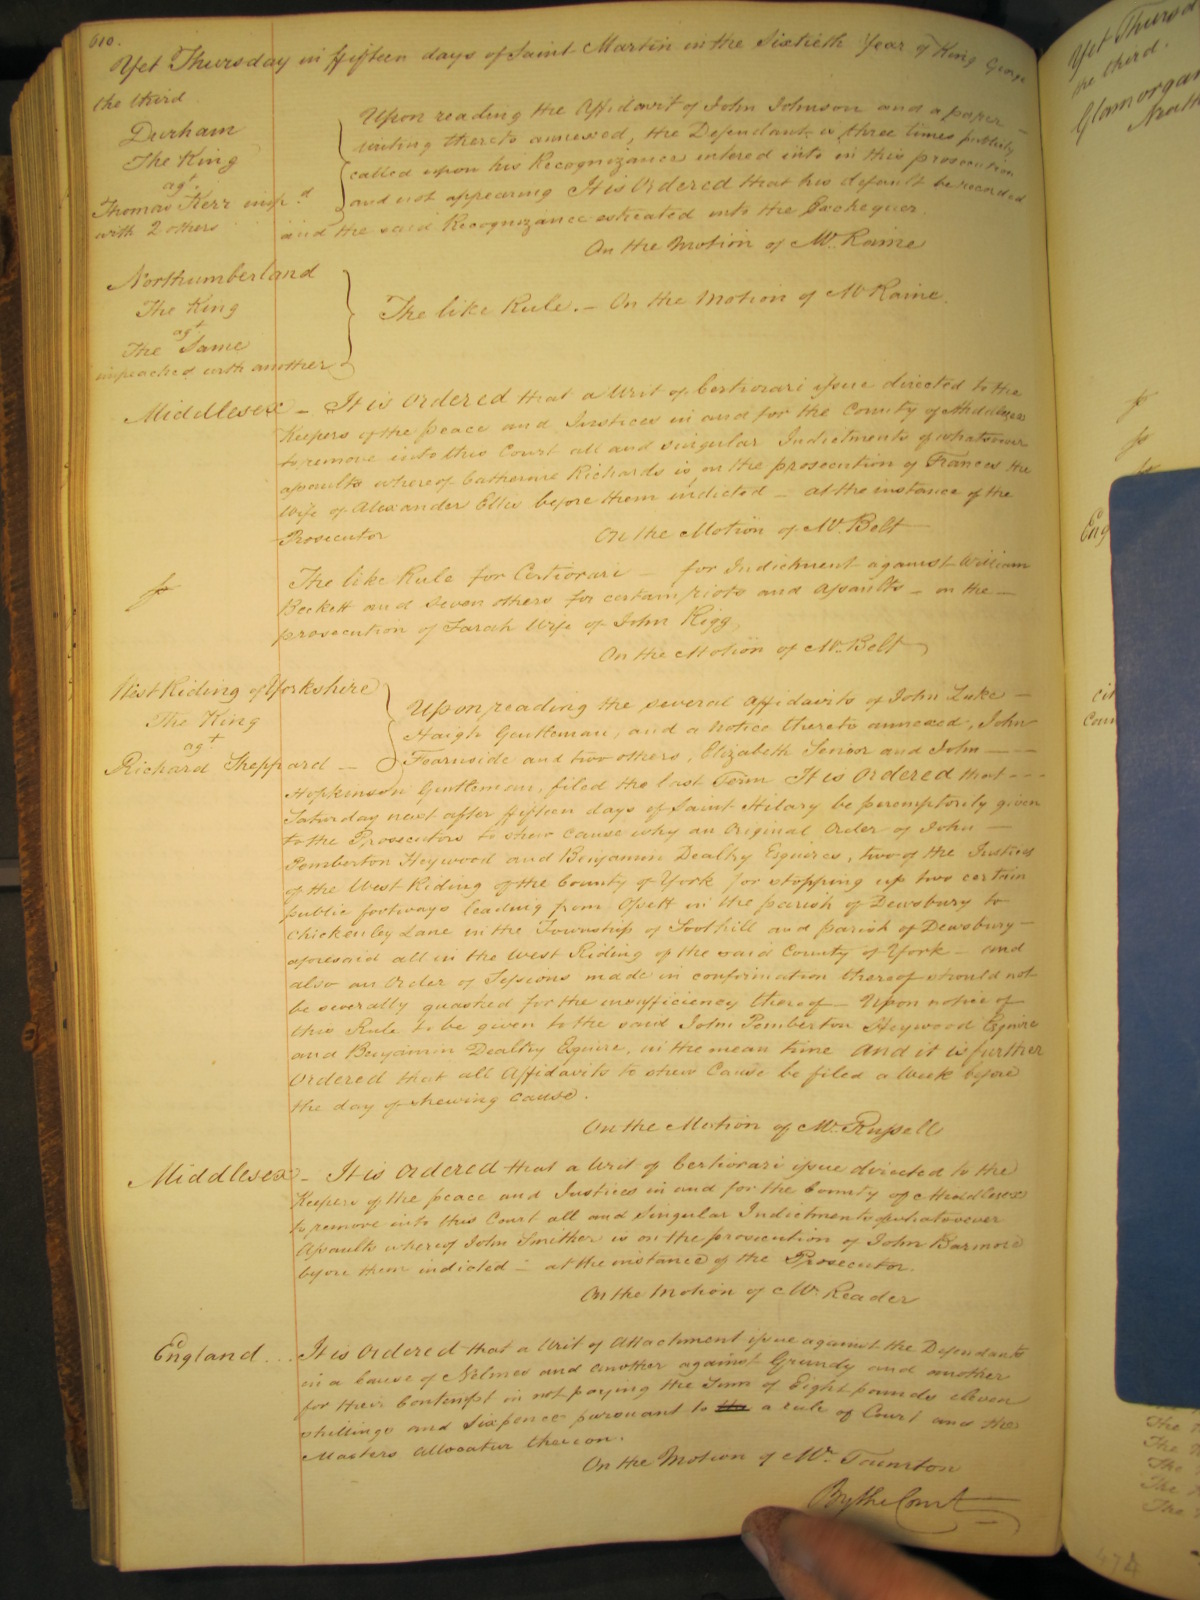 610.
Yet Thursday in fifteen days of Saint Martin in the Sixtieth Year of King George
the third.
Durham
The King
agt.
Thomas Kerr imp.d
with 2 others
Upon reading the Affidavit of John Johnson and a paper
writing thereto annexed, the Defendant is three times publicly
called upon his Recognizance entered into in this prosecution
and not appearing It is Ordered that his default be recorded
and the said Recognizance estreated into the Exchequer.
On the Motion of Mr. Raine
Northumberland
The King
agt.
The Same
impeached with another
The like Rule. – On the Motion of Mr Raine.
Middlesex – It is Ordered that a Writ of Certiorari issue directed to the
Keepers of the peace and Justices in and for the County of Middlesex
to remove into this Court all and singular Indictments of whatsoever
assaults whereof Catherine Richards is on the prosecution of Frances the
Wife of Alexander Ellis before them indicted – at the instance of the
Prosecutor
On the Motion of Mr. Bolt
The like Rule for Certiorari – for Indictment against William
Beckett and seven others for certain riots and assaults – on the –
prosecution of Sarah Wife of John Rigg,
On the Motion of Mr. Bolt
West Riding of Yorkshire
The King
agt
Richard Sheppard –
Upon reading the several Affidavits of John Luke –
Haigh Gentleman, and a notice thereto annexed, John
Fearnside and two others, Elizabeth Senior and John – –
Hopkinson Gentleman, filed the last Term It is Ordered that – –
Saturday next after fifteen days of Saint Hilary be peremptorily given
to the Prosecutors to shew cause why an Original Order of John –
Pemberton Heywood and Benjamin Dealtry Esquires, two of the Justices
of the West Riding of the County of York for stopping up two certain
public footways leading from Ossett in the parish of Dewsbury to
Chickenley Lane in the Township of Soothill and parish of Dewsbury –
aforesaid all in the West Riding of the said County of York – and
also an Order of Sessions made in confirmation thereof should not
be severally quashed for the insufficiency thereof – Upon notice of
this Rule to be given to the said John Pemberton Heywood Esquire
and Benjamin Dealtry Esquire, in the mean time And it is further
Ordered that all Affidavits to shew Cause be filed a Week before
the day of shewing cause.
On the Motion of Mr. Russell
Middlesex – It is Ordered that a Writ of Certiorari issue directed to the
Keepers of the peace and Justices in and for the County of Middlesex
to remove into this Court all and singular Indictments of whatsoever
Assaults whereof John Smither is on the prosecution of John
before them indicted – at the instance of the Prosecutor.
On the Motion of Mr. Reader
England... It is Ordered that a Writ of Attachment issue against the Defendants
in a Cause of and another against Grundy and another
for their Contempt in not paying the Sum of Eight pounds eleven
shillings and Sixpence pursuant to a rule of Court and the
Masters Allocatur thereon.
On the Motion of Mr. Taunton
By the Court
Yet Thursd
the third.
Glamorgan
Eng
474